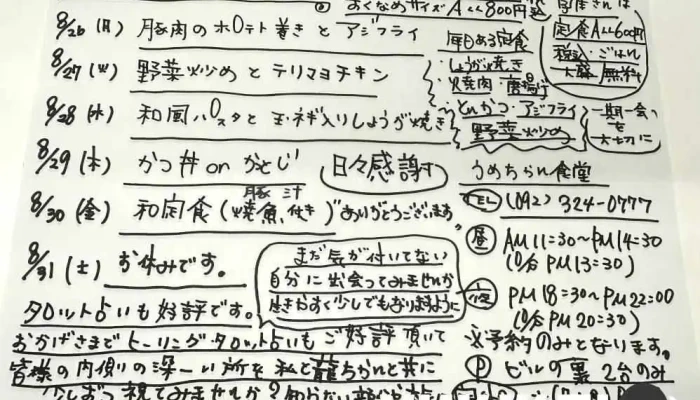 おくなめサイズ A上 800円税込
8/26 (月) 豚肉のポテト巻きとアジフライ
8/27 (火) 野菜炒めとテリマヨチキン
8/28 (水) 和風パスタと玉ネギ入りしょうが焼き
8/29 (木) かつ丼 on かとじ
8/30 (金) 和定食 (焼魚付き)
豚汁
ありがとうございます
8/31 (土) お休みです。
日々感謝
毎日ある定食
・しょうが焼き
・焼肉・唐揚げ
・とんかつ・アジフライ
野菜炒め
学生さんは
定食 600円
税込・ごはん
大盛 無料
一期一会
を
大切に
うめちゃん食堂
TEL (092) 324-0777
昼 AM11=30~PM14=30
(L/o PM13=30)
夜 PM18=30~PM22=00
(L/o PM20=30)
※予約のみとなります。
P ビルの裏 2台のみ
まだ気が付いてない
自分に出会ってみませんか
生きやすく少しでもなりますように
タロット占いも好評です。
おかげさまでヒーリング・タロット占いもご好評頂いて
皆様の内側の深ーい所を私と龍ちゃんと共に
少しずつ視てみませんか?知らない